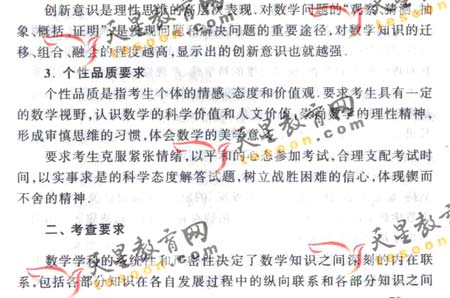 创新意识是理性思维的高层次表现.对数学问题的“观察、猜测、抽
象、概括、证明”,是发现问题和解决问题的重要途径,对数学知识的迁
移、组合、融会的程度越高,显示出的创新意识也就越强.
3. 个性品质要求
个性品质是指考生个体的情感、态度和价值观.要求考生具有一定
的数学视野,认识数学的科学价值和人文价值,崇尚数学的理性精神,
形成审慎思维的习惯,体会数学的美学意义.
要求考生克服紧张情绪,以平和的心态参加考试,合理支配考试时
间,以实事求是的科学态度解答试题,树立战胜困难的信心,体现锲而
不舍的精神.
二、考查要求
数学学科的系统性和严密性决定了数学知识之间深刻的内在联
系,包括各部分知识在各自发展过程中的纵向联系和各部分知识之间
天星教育网
tesoon.com
天星教育网
tesoon.com
天星教育网